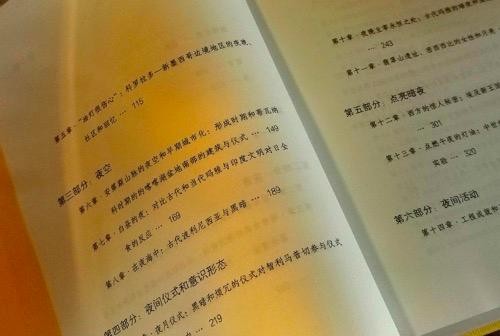 第五章·“油灯很伤心”：科罗拉多—新墨西哥边境地区的夜晚、
社区和回忆 … 115
第三部分：夜空
第六章·安第斯山脉的夜空和早期城市化：形成时期和蒂瓦纳
科时期的的喀喀湖盆地南部的建筑与仪式 … 149
第七章·白昼的夜：对比古代和当代玛雅与印度文明对日全
食的反应 … 169
第八章·在夜海中：古代波利尼西亚与黑暗 … 189
第四部分：夜间仪式和意识形态
夜月仪式：黑暗和煤冗的仪式对智利马普切参与仪式
219
… 243
第十一章·
第五部分：点亮暗夜
第十二章·西方的惊人秘密：
… 301
第十三章·点燃午夜的灯油：
实验 … 320
第六部分：夜间活动
第十四章·工程